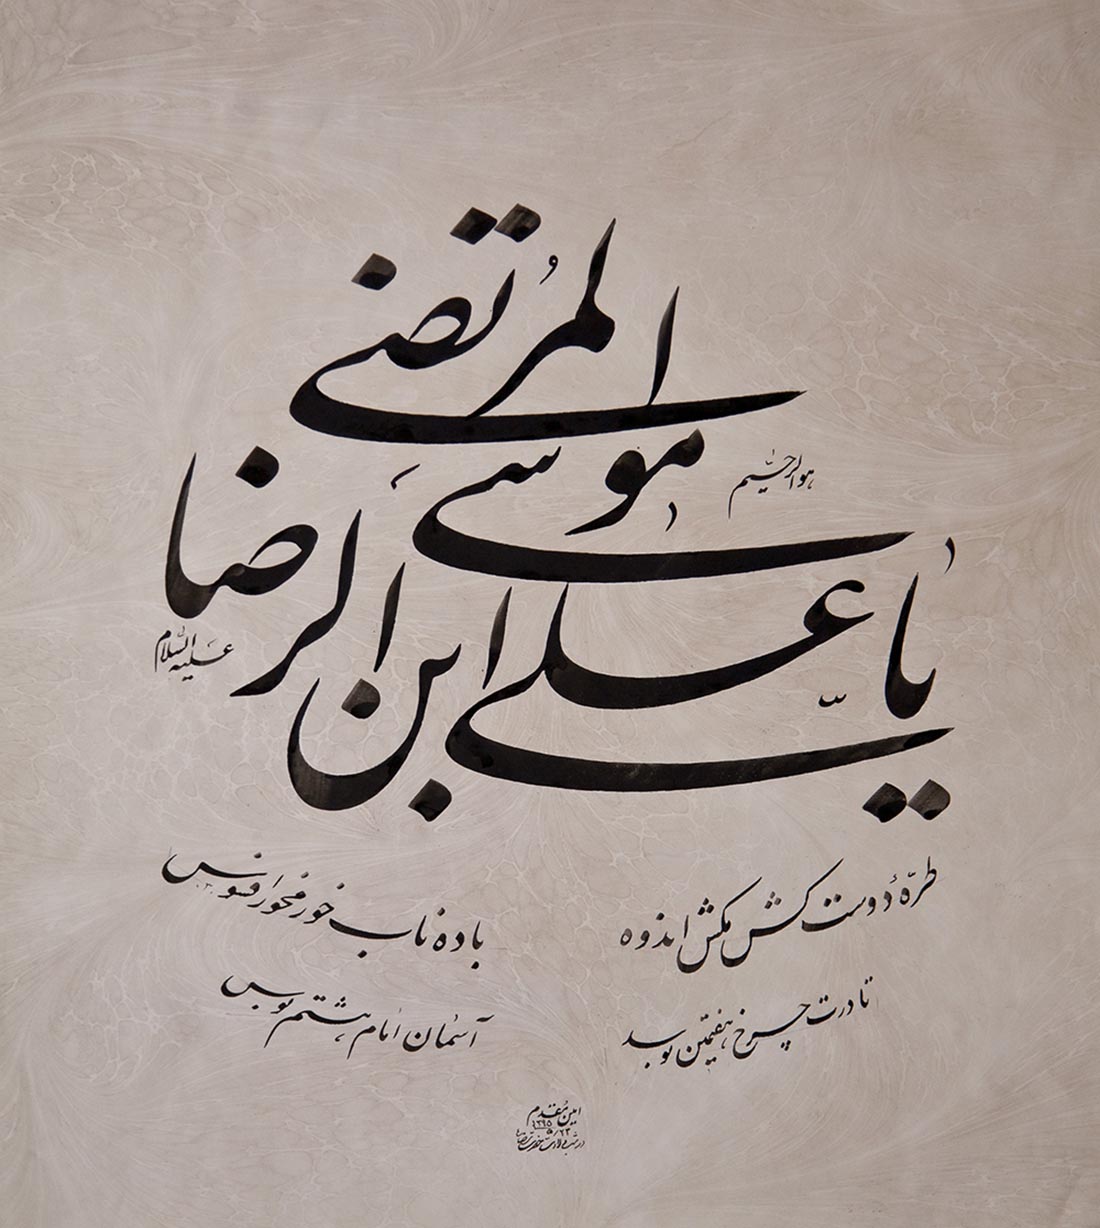 هوالرحیم
یا علی ابن موسی الرضا المرتضی
علیه السلام
طرّهٔ دوست کش مکش اندوه
بادهٔ ناب خور مخور افسوس
تا درت چرخ هفتمین بوسد
آستان امام هشتم بوس
امین مقدم
۱۳۹۵
۵/۲۳
در شب ولادت حضرت رضا